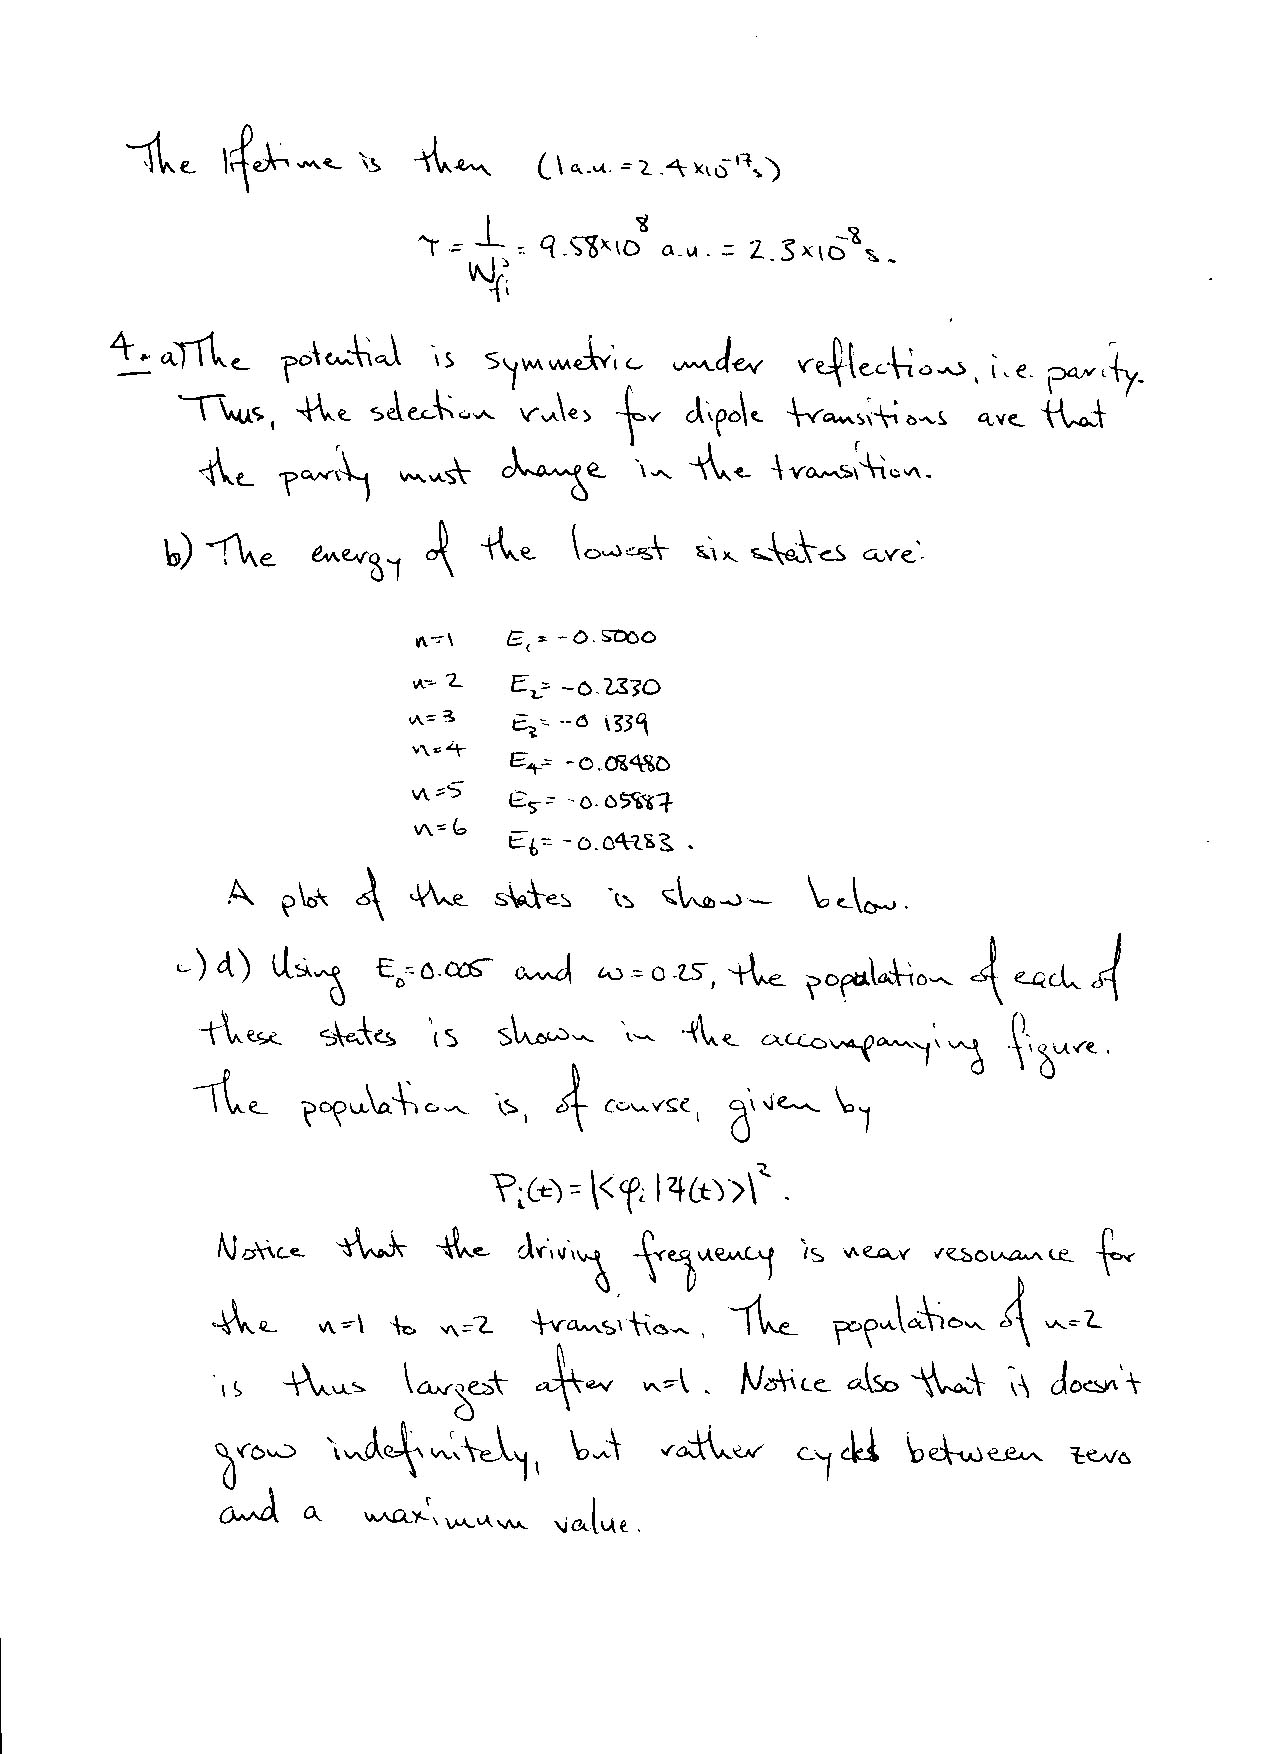 The lifetime is then (1 a.u. = 2.4 x10⁻¹⁷s)
τ = 1/W_fi = 9.58x10⁸ a.u. = 2.3x10⁻⁸ s.
4. a) The potential is symmetric under reflections, i.e. parity.
Thus, the selection rules for dipole transitions are that
the parity must change in the transition.
b) The energy of the lowest six states are:
n=1 E₁ = -0.5000
n=2 E₂ = -0.2330
n=3 E₃ = -0.1339
n=4 E₄ = -0.08480
n=5 E₅ = -0.05887
n=6 E₆ = -0.04283.
A plot of the states is shown below.
c) d) Using E₀=0.005 and ω=0.25, the population of each of
these states is shown in the accompanying figure.
The population is, of course, given by
Pᵢ(t) = |<φᵢ|Ψ(t)>|².
Notice that the driving frequency is near resonance for
the n=1 to n=2 transition. The population of n=2
is thus largest after n=1. Notice also that it doesn't
grow indefinitely, but rather cycles between zero
and a maximum value.